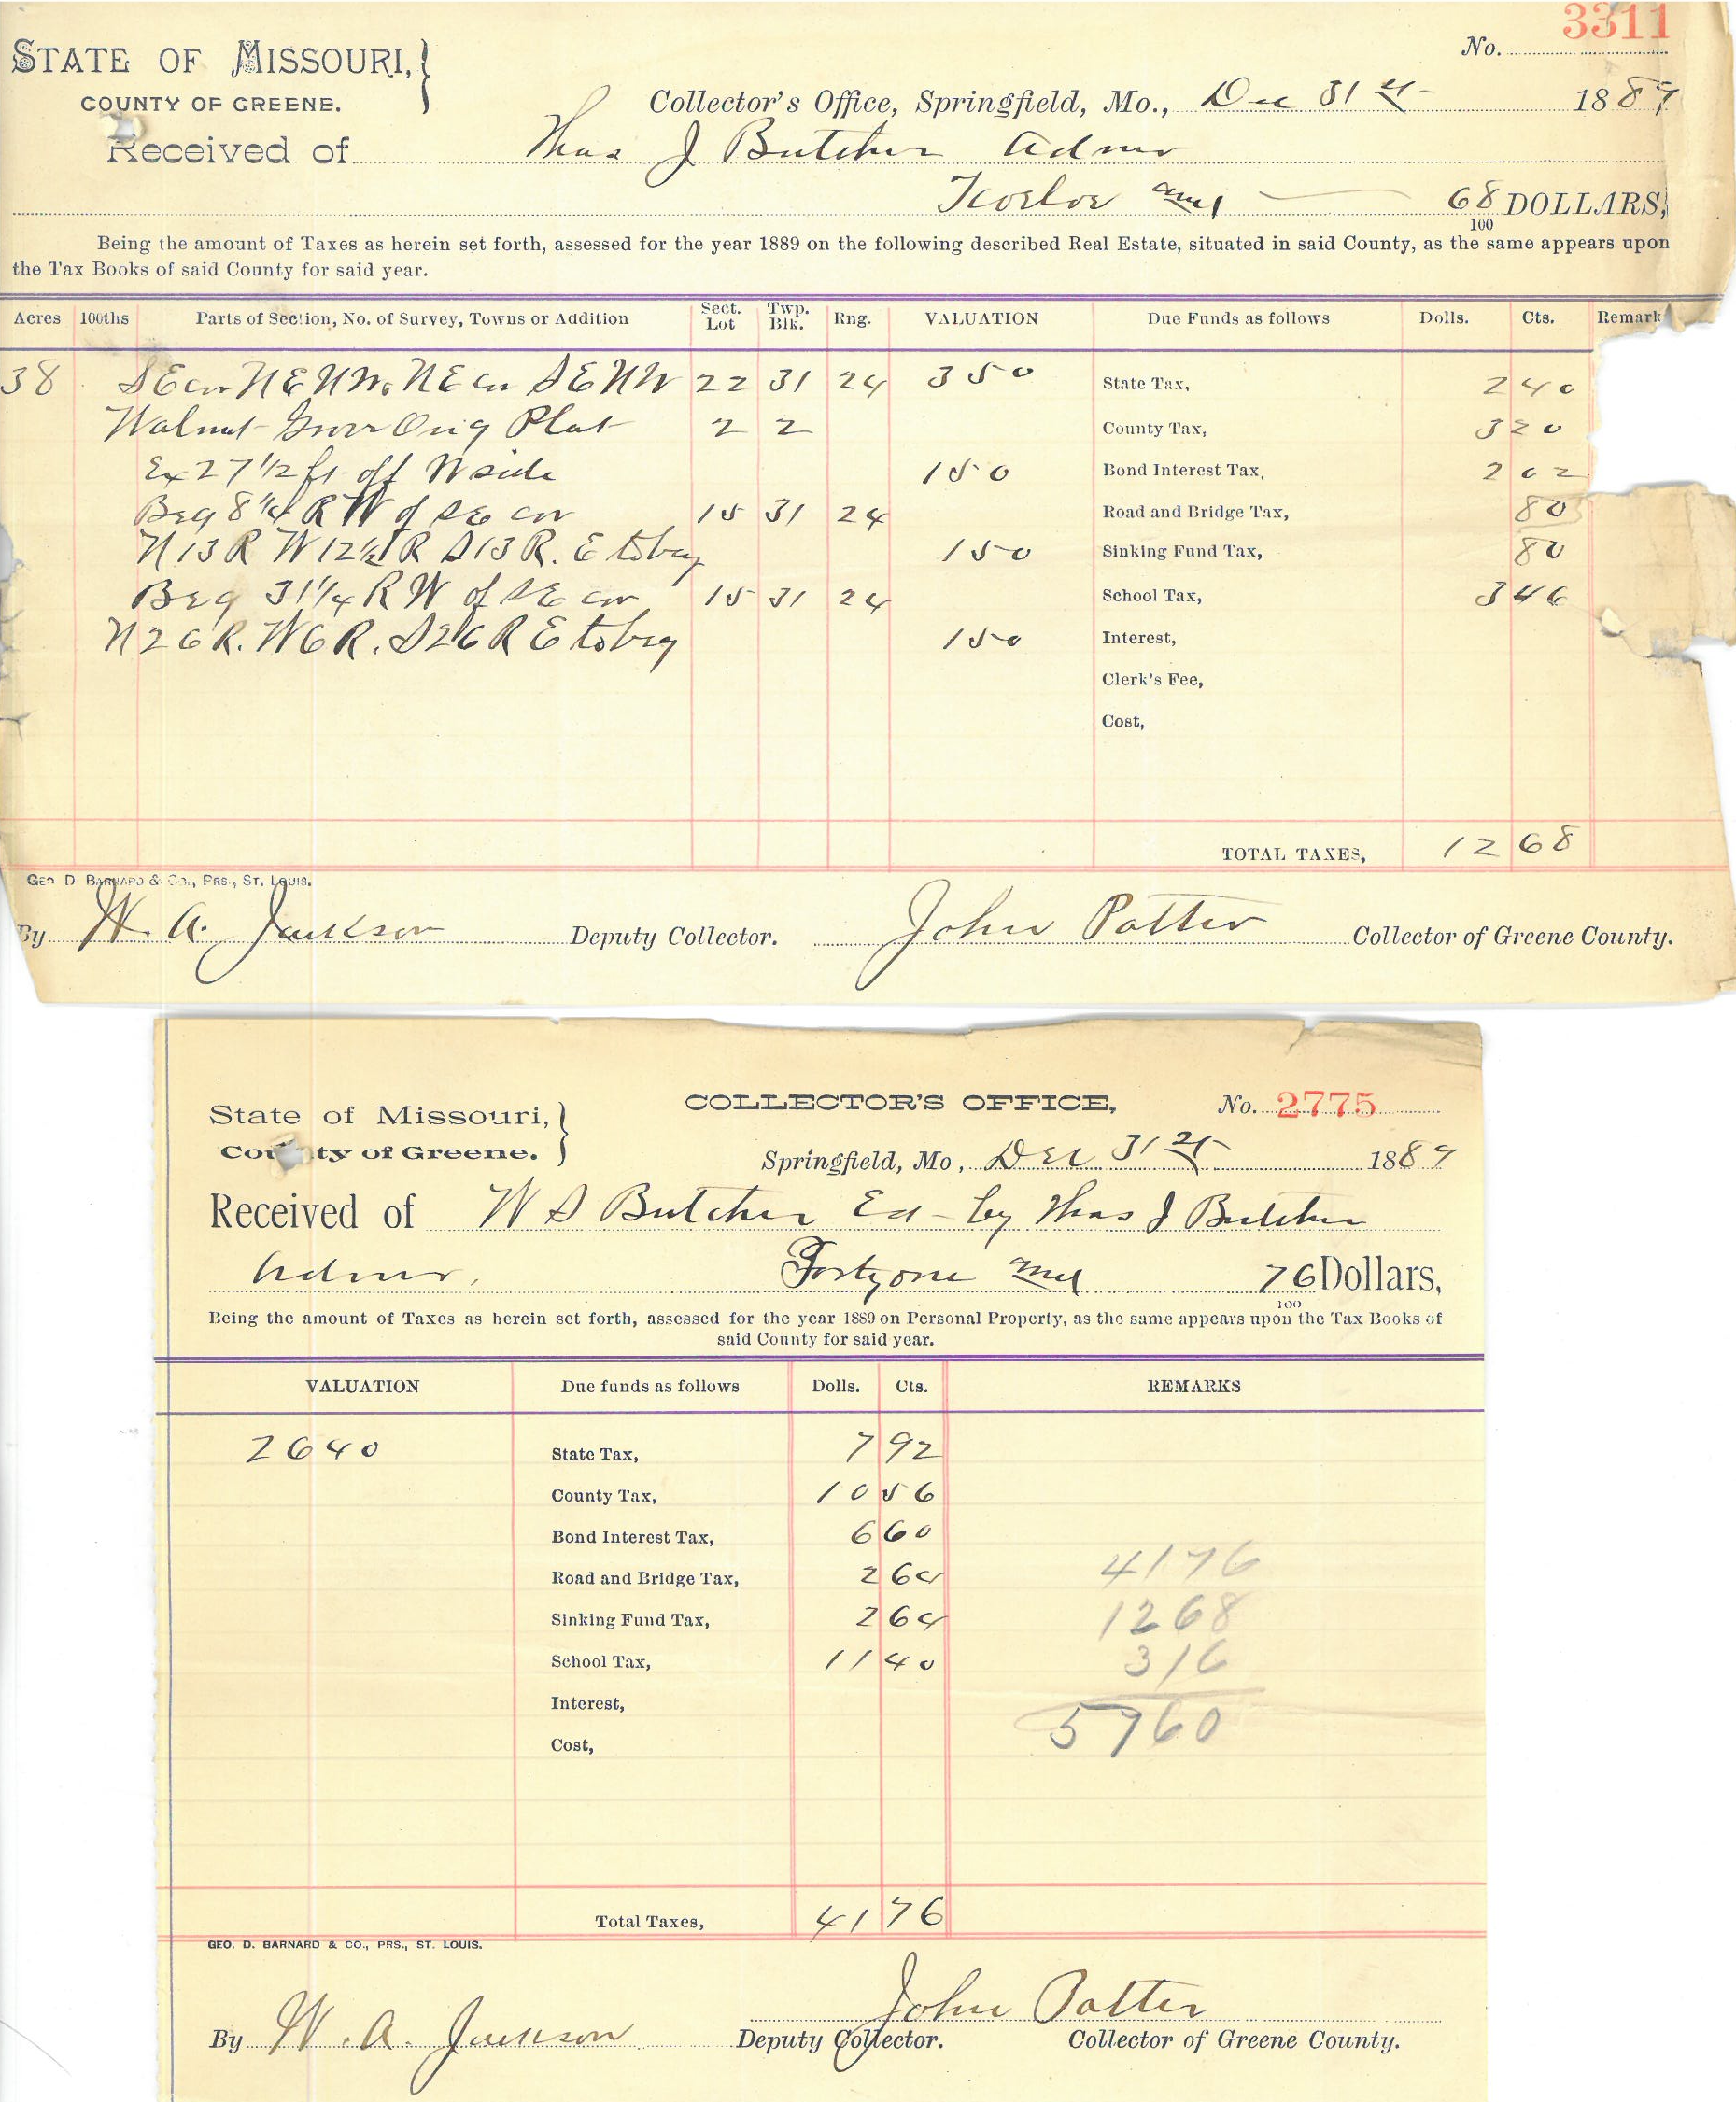 3311
STATE OF MISSOURI, } No.
COUNTY OF GREENE. Collector's Office, Springfield, Mo., Dec 31st 1889
Received of Thos J Butcher Admr
Twelve and 68/100 DOLLARS,
Being the amount of Taxes as herein set forth, assessed for the year 1889 on the following described Real Estate, situated in said County, as the same appears upon
the Tax Books of said County for said year.
Acres 100ths Parts of Section, No. of Survey, Towns or Addition Sect. Lot Twp. Blk. Rng. VALUATION Due Funds as follows Dolls. Cts. Remark
38 SE cor NE NW, NE cor SE NW 22 31 24 350 State Tax, 2 40
Walnut Grove Orig Plat 2 2 County Tax, 3 20
Ex 27 1/2 ft off W side 150 Bond Interest Tax, 2 02
Beg 8 1/4 R W of SE cor 15 31 24 Road and Bridge Tax, 80
N 13 R W 12 1/2 R S 13 R. E to beg 150 Sinking Fund Tax, 80
Beg 31 1/4 R W of SE cor 15 31 24 School Tax, 3 46
N 26 R. W 6 R. S 26 R E to beg 150 Interest,
Clerk's Fee,
Cost,
TOTAL TAXES, 12 68
GEO D BARNARD & CO., PRS., ST. LOUIS.
By W. A. Jackson Deputy Collector. John Potter Collector of Greene County.
COLLECTOR'S OFFICE, No. 2775
State of Missouri, }
County of Greene. Springfield, Mo, Dec 31st 1889
Received of W S Butcher Est by Thos J Butcher
Admr, Forty one and 76/100 Dollars,
Being the amount of Taxes as herein set forth, assessed for the year 1889 on Personal Property, as the same appears upon the Tax Books of
said County for said year.
VALUATION Due funds as follows Dolls. Cts. REMARKS
2640 State Tax, 7 92
County Tax, 10 56
Bond Interest Tax, 6 60
Road and Bridge Tax, 2 64 4176
Sinking Fund Tax, 2 64 1268
School Tax, 11 40 316
Interest, 5760
Cost,
Total Taxes, 41 76
GEO. D. BARNARD & CO., PRS., ST. LOUIS.
John Potter
By W. A. Jackson Deputy Collector. Collector of Greene County.